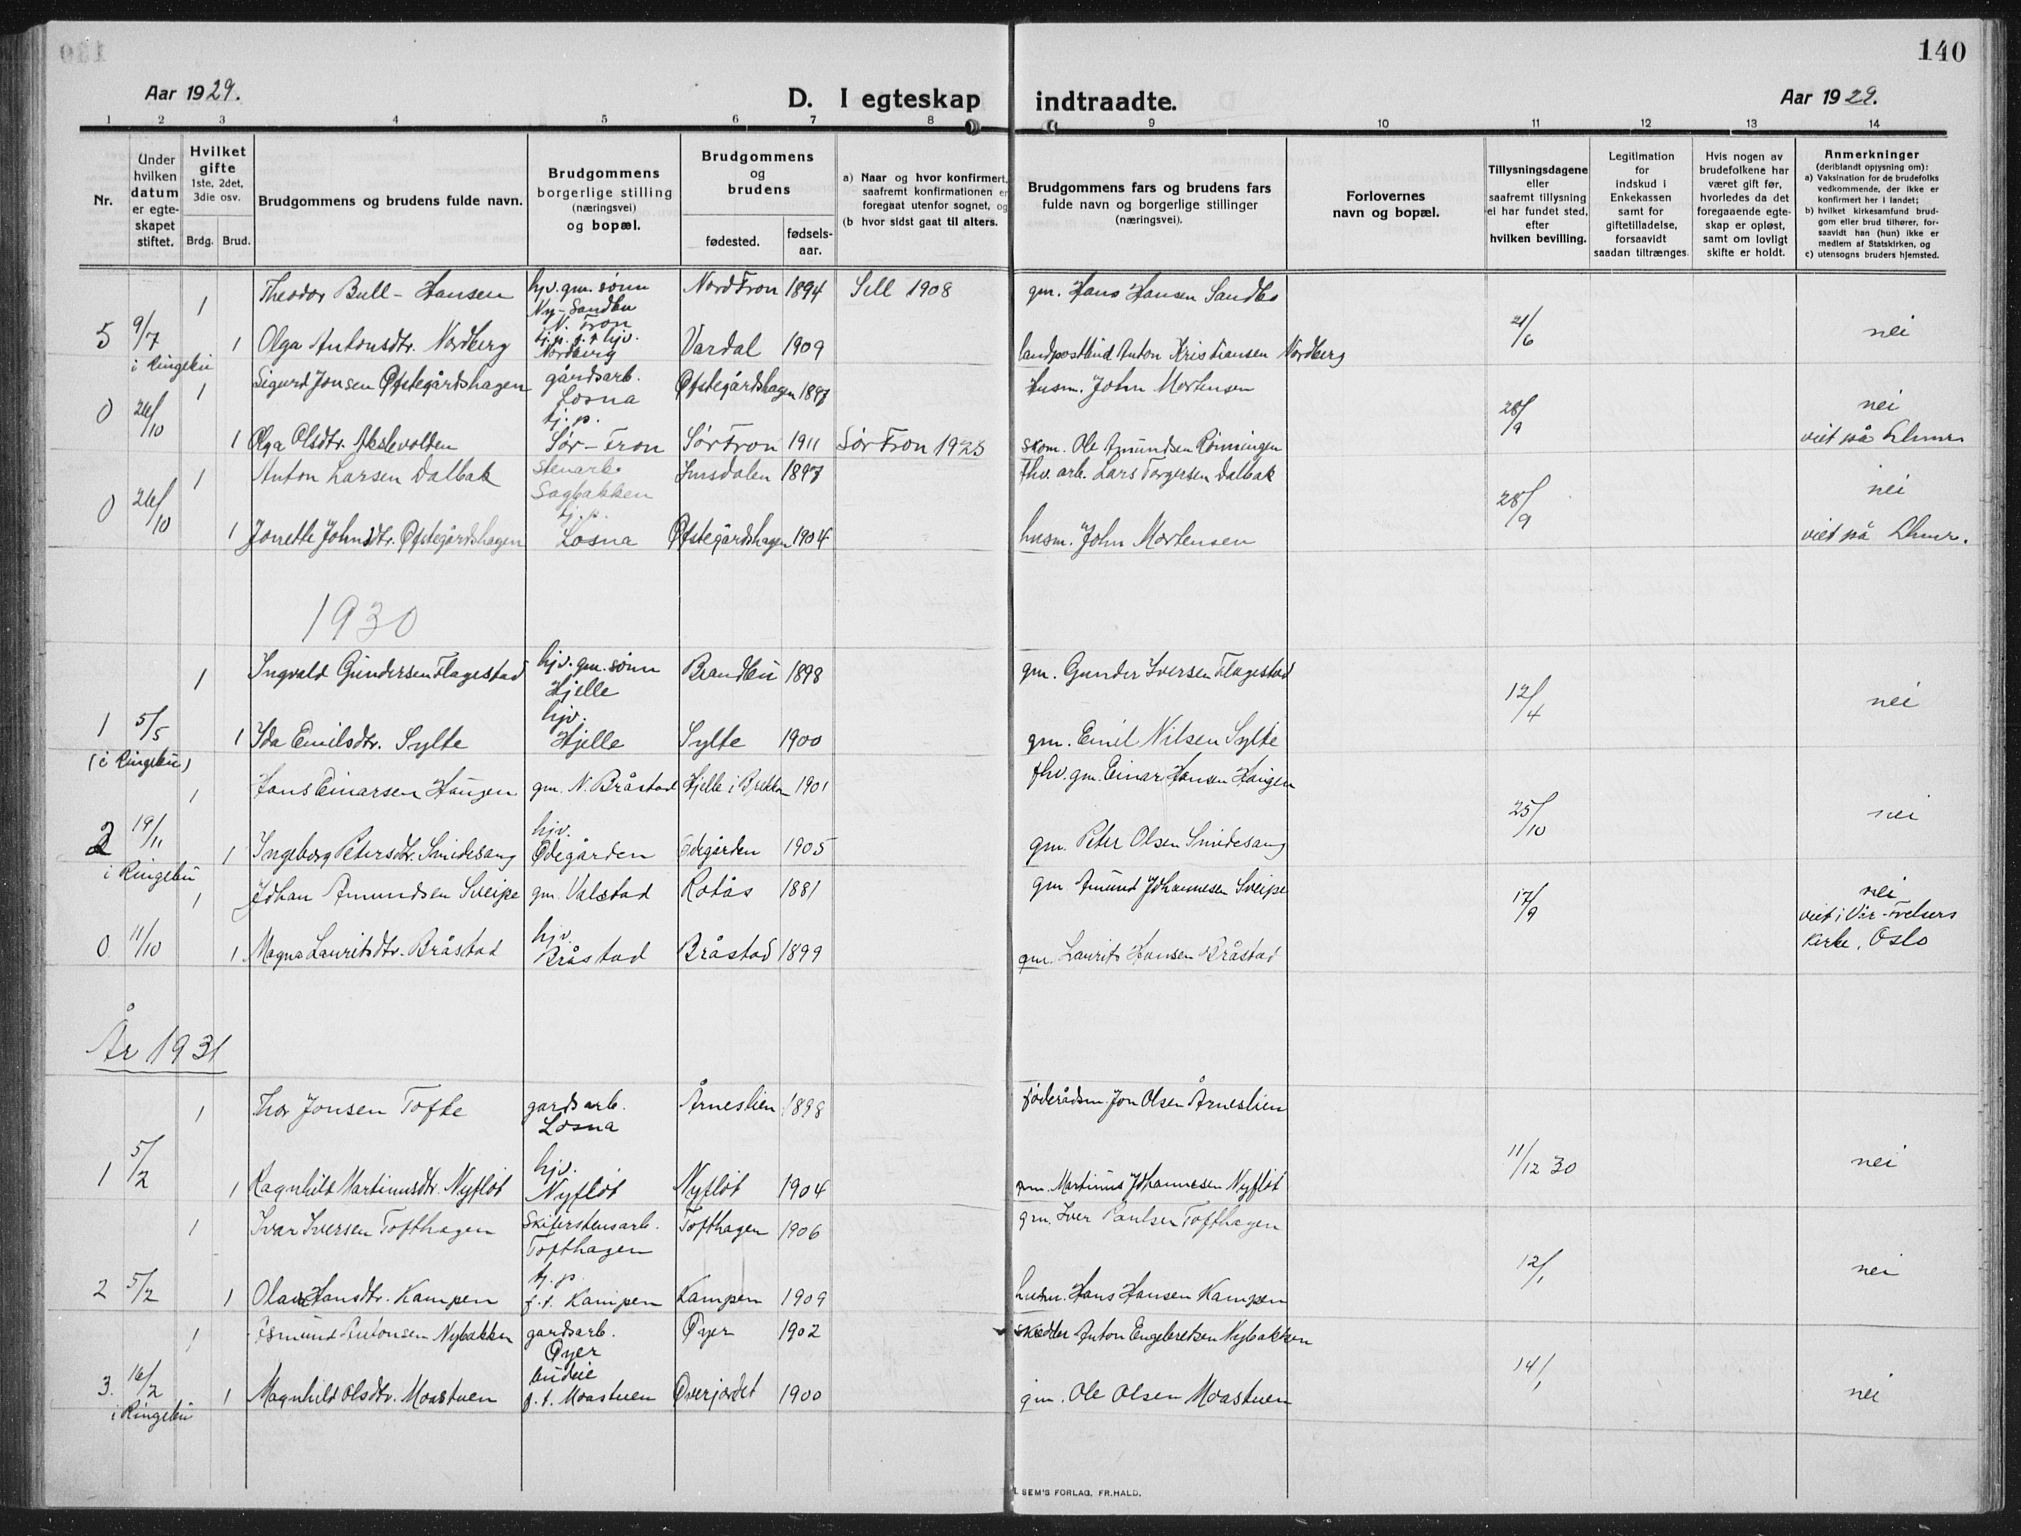 140
Aar 1929.
D. I egteskap indtraadte.
Aar 1929.
1 2 3 4 5 6 7 8 9 10 11 12 13 14
Nr.
Under hvilken datum er egte-skapet stiftet.
Hvilket gifte 1ste, 2det, 3die osv.
Brdg. Brud.
Brudgommens og brudens fulde navn.
Brudgommens borgerlige stilling (næringsvei) og bopæl.
Brudgommens og brudens
fødested. fødsels-aar.
a) Naar og hvor konfirmert, saafremt konfirmationen er foregaat utenfor sognet, og
(b hvor sidst gaat til alters.
Brudgommens fars og brudens fars fulde navn og borgerlige stillinger (næringsvei).
Forlovernes navn og bopæl.
Tillysningsdagene eller saafremt tillysning ei har fundet sted, efter hvilken bevilling.
Legitimation for indskud i Enkekassen samt for giftetilladelse, forsaavidt saadan tiltrænges.
Hvis nogen av brudefolkene har været gift før, hvorledes da det foregaaende egte-skap er opløst, samt om lovligt skifte er holdt.
Anmerkninger (deriblandt opjysning om):
a) Vaksination for de brudefolks vedkommende, der ikke er konfirmert her i landet;
b) hvilket kirkesamfund brud-gom eller brud tilhører, for-saavidt han (hun) ikke er medlem af Statskirken, og
c) utensogns bruders hjemsted.
1 Theodor Bull-Hansen hjv. gm. sønn Ny-Sandbu N. Fron Nord Fron 1894 Sell 1908 gm. Hans Hansen Sandbo
5 9/7 i Ringebu 1 Olga Antonsdtr. Nordberg Nordberg Vardal 1909 landpostbud Anton Kristiansen Nordberg 21/6 nei
1 Sigurd Jonsen Øfstegårdshagen gårdsarb. Losna Øfstegårdshagen 1897 husm. John Mortensen
0 26/10 1 Olga Olsdtr. Akslevolden tj.p. Sør-Fron Sør Fron 1911 Sør Fron 1925 skom. Ole Amundsen Rønningen 28/9 nei viet på Lhmr.
1 Anton Larsen Dalbak Stenarb. Sagbakken Imsdalen 1897 fhv. arb. Lars Torgersen Dalbak
0 26/10 1 Jonette Johnsdtr. Øfstegårdshagen tj.p. Losna Øfstegårdshagen 1904 husm. John Mortensen 28/9 nei viet på Lhmr.
1930
1 Ingvald Gundersen Flagestad hjv. gm. sønn Hjelle Brandbu 1898 gm. Gunder Iversen Flagestad
1 5/5 (i Ringebu) 1 Ida Emilsdtr. Sylte hjv. Hjelle Sylte 1900 gm. Emil Nilsen Sylte 12/4 nei
1 Hans Einarsen Haugen gm. N. Bråstad Hjelle i Brekkom 1901 fhv. gm. Einar Hansen Haugen
2 19/11 i Ringebu 1 Ingeborg Petersdtr. Smidesang hjv. Ødegården Ødegården 1905 gm. Peter Olsen Smidesang 25/10 nei
1 Johan Amundsen Sveipe gm. Valstad Rolås 1881 gm Amund Johannesen Sveipe
0 11/10 1 Magna Lauritsdtr. Bråstad hjv. Bråstad Bråstad 1899 gm. Laurits Hansen Bråstad 17/9 nei viet i Vår-Frelsers Kirke, Oslo
År 1931
1 Thor Jonsen Tofte gardsarb. Losna Årneslien 1898 føderådsm. Jon Olsen Årneslien
1 5/2 1 Ragnhild Martinusdtr. Nyfløt hjv. Nyfløt Nyfløt 1904 gm. Martinus Johannesen Nyfløt 11/12 30 nei
1 Ivar Iversen Tofthagen Skiferstensarb. Tofthagen Tofthagen 1906 gm. Iver Paulsen Tofthagen
2 5/2 1 Olava Hansdtr. Kampen tj. p. f. t. Kampen Kampen 1909 husm. Hans Hansen Kampen 12/1 nei
1 Asmund Antonsen Nybakken gardsarb. Øyer Øyer 1902 skredder Anton Engebretsen Nybakken
3. 16/2 i Ringebu 1 Magnhild Olsdtr. Moastuen budeie f. t. Moastuen Øverjordet 1900 gm. Ole Olsen Moastuen 14/1 nei
SEM'S FORLAG, FR.HALD.